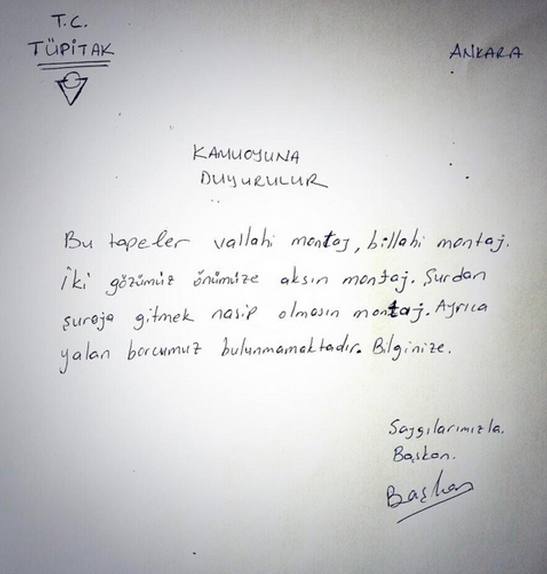 T.C.
TÜPİTAK
ANKARA
KAMUOYUNA
DUYURULUR
Bu tapeler vallahi montaj, billahi montaj.
İki gözümüz önümüze aksın montaj. Şurdan
şuraya gitmek nasip olmasın montaj. Ayrıca
yalan borcumuz bulunmamaktadır. Bilginize.
Saygılarımızla.
Başkan.
Başkan